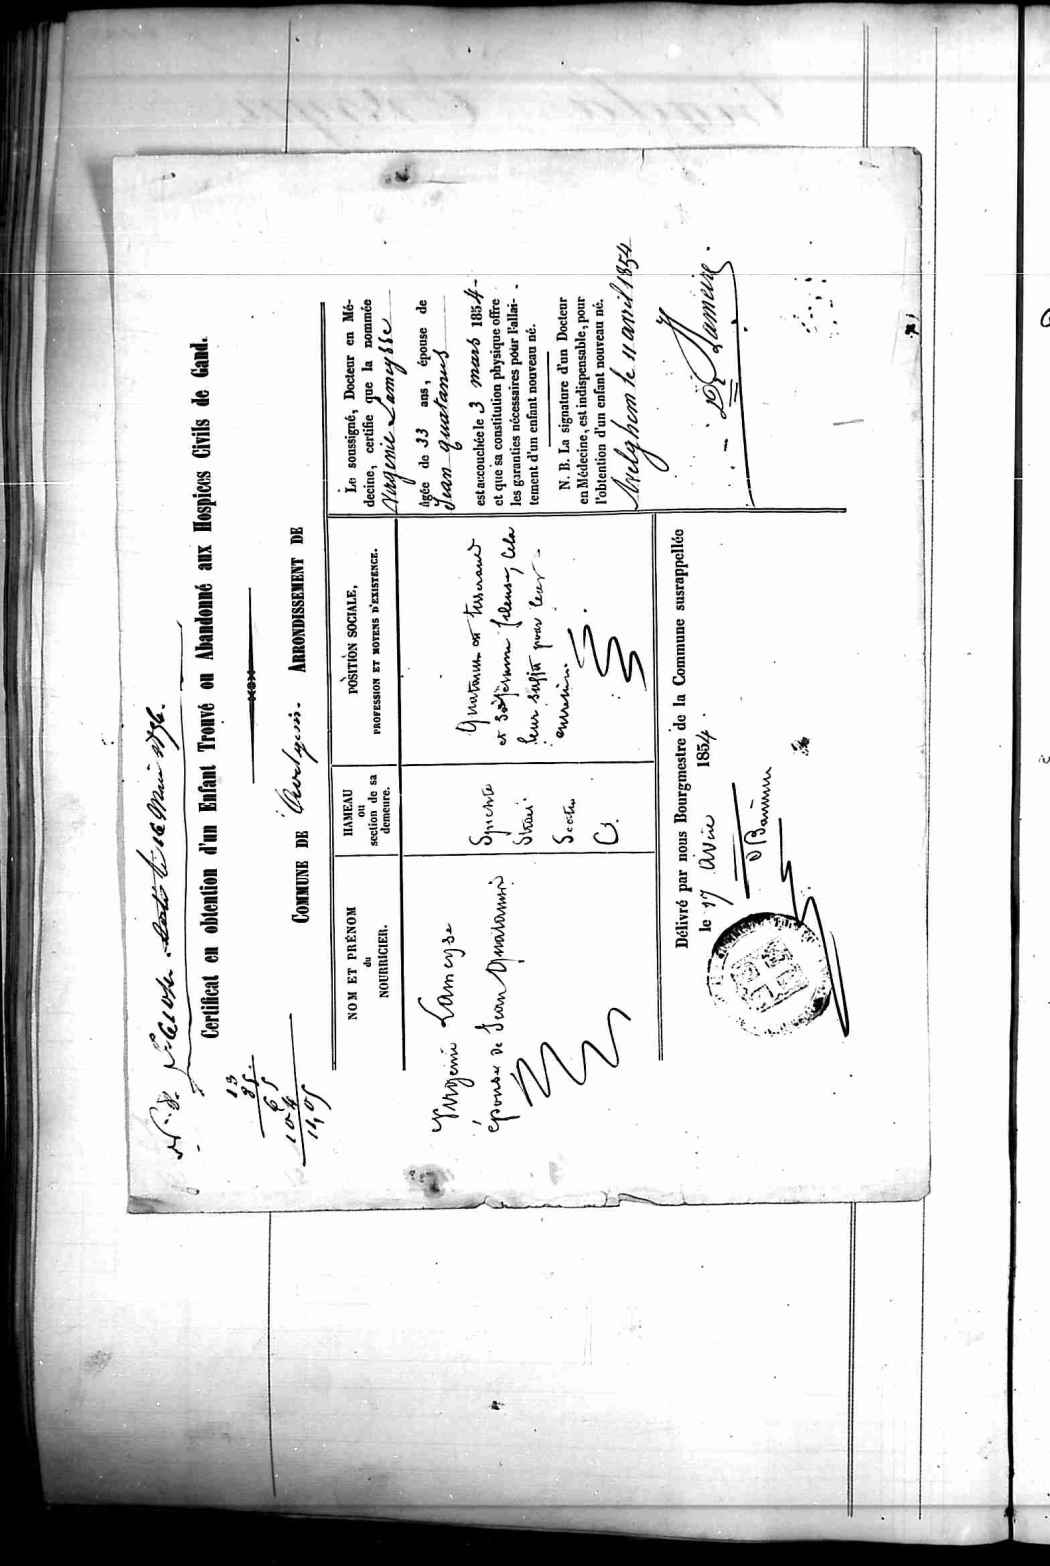 Certificat en obtention d'un Enfant Trouvé ou Abandonné aux Hospices Civils de Gand.
13
25
65
10-4
11,05
COMMUNE DE ARRONDISSEMENT DE
NOM ET PRÉNOM
du
NOURRICIER.
Virginie Lameyse
épouse de Jean Quatannis
HAMEAU
ou
section de sa
demeure.
Spichte
Straet
Sectie
C.
POSITION SOCIALE,
PROFESSION ET MOYENS D'EXISTENCE.
Quatannis est tisserand
et sa femme fileuse, Cela
leur suffit pour leur
entretien.
Le soussigné, Docteur en Mé-
decine, certifie que la nommée
Virginie Lameysse
âgée de 33 ans, épouse de
Jean Quatannis
est accouchée le 3 mars 1854
et que sa constitution physique offre
les garanties nécessaires pour l'allai-
tement d'un enfant nouveau né.
N. B. La signature d'un Docteur
en Médecine, est indispensable, pour
l'obtention d'un enfant nouveau né.
Avelghem le 11 avril 1854
Délivré par nous Bourgmestre de la Commune susrappellée
le 17 avril 1854.